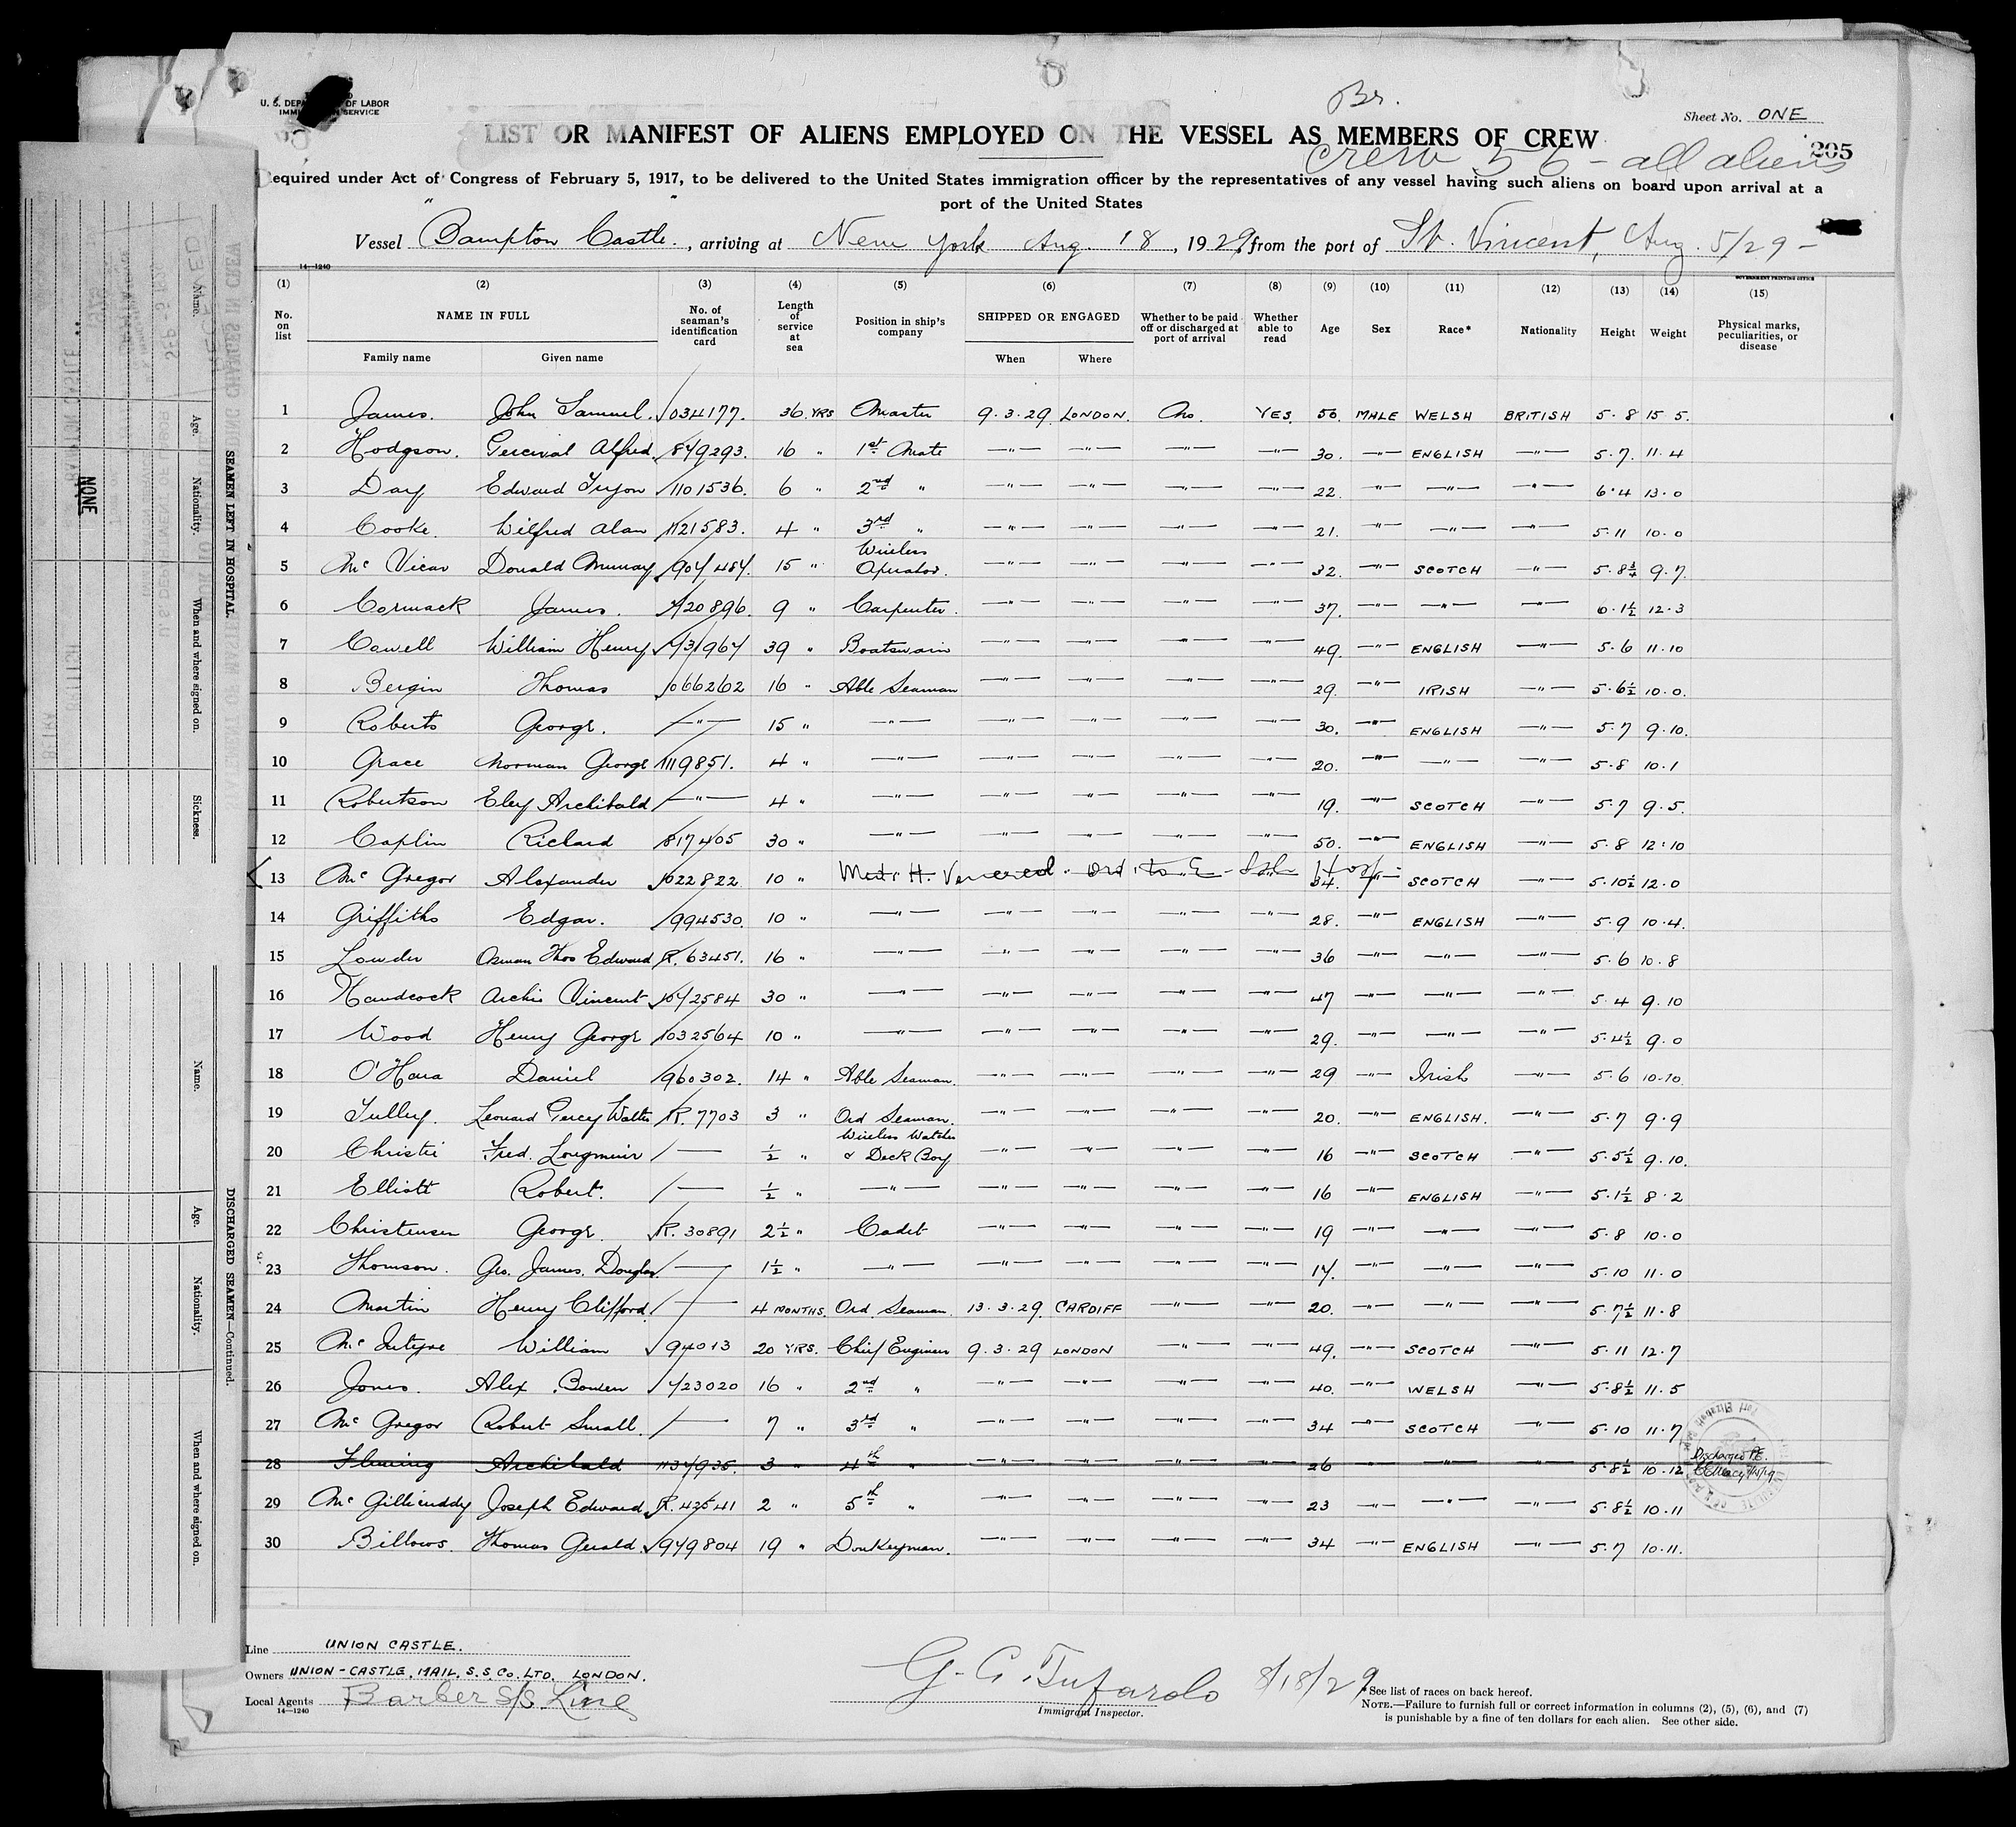 U. S. DEPA OF LABOR
IMM SERVICE
Br.
Sheet No. ONE
LIST OR MANIFEST OF ALIENS EMPLOYED ON THE VESSEL AS MEMBERS OF CREW
205
Crew 56 - all aliens
equired under Act of Congress of February 5, 1917, to be delivered to the United States immigration officer by the representatives of any vessel having such aliens on board upon arrival at a
port of the United States
Vessel "Bampton Castle", arriving at New York Aug. 18, 1929, from the port of St. Vincent, Aug. 5/29 -
14—1240
GOVERNMENT PRINTING OFFICE
(1) (2) (3) (4) (5) (6) (7) (8) (9) (10) (11) (12) (13) (14) (15)
No. on list NAME IN FULL No. of seaman's identification card Length of service at sea Position in ship's company SHIPPED OR ENGAGED Whether to be paid off or discharged at port of arrival Whether able to read Age Sex Race* Nationality Height Weight Physical marks, peculiarities, or disease
Family name Given name When Where
1 James. John Samuel. 1034177. 36 YRS Master 9.3.29. LONDON. No. YES. 50. MALE WELSH BRITISH 5.8 15 5.
2 Hodgson. Percival Alfred. 849293. 16 " 1st Mate —"— —"— —"— —"— 30. —"— ENGLISH —"— 5.7. 11.4
3 Day Edward Tryon 1101536. 6 " 2nd " —"— —"— —"— —"— 22. —"— —"— —"— 6.4 13.0
4 Cooke. Wilfred Alan 1121583. 4 " 3rd " —"— —"— —"— —"— 21. —"— —"— —"— 5.11 10.0
5 Mc Vicar Donald Murray 904484. 15 " Wireless Operator. —"— —"— —"— —"— 32. —"— SCOTCH —"— 5.8¾ 9.7.
6 Cormack James. 720896. 9 " Carpenter. —"— —"— —"— —"— 37. —"— —"— —"— 6.1½ 12.3
7 Cowell William Henry 731967 39 " Boatswain —"— —"— —"— —"— 49. —"— ENGLISH —"— 5.6 11.10
8 Bergin Thomas 1066262 16 " Able Seaman —"— —"— —"— —"— 29. —"— IRISH —"— 5.6½ 10.0.
9 Roberts George. —"— 15 " —"— —"— —"— —"— —"— 30. —"— ENGLISH —"— 5.7 9.10.
10 Grace Norman George 1119851. 4 " —"— —"— —"— —"— —"— 20. —"— —"— —"— 5.8 10.1
11 Robertson Eley Archibald —"— 4 " —"— —"— —"— —"— —"— 19. —"— SCOTCH —"— 5.7 9.5.
12 Caplin Richard 817405 30 " —"— —"— —"— —"— —"— 50. —"— ENGLISH —"— 5.8 12.10
13 Mc Gregor Alexander 1022822 10 " Med. H. Venereal. Ord. to E. Isl. Hosp. 34. —"— SCOTCH —"— 5.10½ 12.0
14 Griffiths Edgar. 994530. 10 " —"— —"— —"— —"— —"— 28. —"— ENGLISH —"— 5.9 10.4.
15 Lowder Thos Edward R. 63451. 16 " —"— —"— —"— —"— —"— 36 —"— —"— —"— 5.6 10.8
16 Handcock Archie Vincent 1042584 30 " —"— —"— —"— —"— —"— 47 —"— —"— —"— 5.4 9.10
17 Wood Henry George 1032564 10 " —"— —"— —"— —"— —"— 29. —"— —"— —"— 5.4½ 9.0
18 O'Hara Daniel 960302. 14 " Able Seaman. —"— —"— —"— —"— 29 —"— Irish —"— 5.6 10.10.
19 Tulley. Leonard Percy Walter R. 7703 3 " Ord Seaman. —"— —"— —"— —"— 20. —"— ENGLISH. —"— 5.7 9.9
20 Christie Fred. Longmuir — ½ " Wireless Watcher & Deck Boy —"— —"— —"— —"— 16 —"— SCOTCH —"— 5.5½ 9.10.
21 Elliott Robert. — ½ " —"— —"— —"— —"— —"— 16 —"— ENGLISH —"— 5.1½ 8.2
22 Christensen George. R. 30891 2½ " Cadet —"— —"— —"— —"— 19 —"— —"— —"— 5.8 10.0
23 Thomson. Geo. James. Douglas. — 1½ " —"— —"— —"— —"— —"— 17. —"— —"— —"— 5.10 11.0
24 Martin Henry Clifford — 4 MONTHS. Ord. Seaman. 13.3.29. CARDIFF —"— —"— 20. —"— —"— —"— 5.7½ 11.8
25 Mc Intyre William 94013 20 YRS. Chief Engineer 9.3.29 LONDON —"— —"— 49. —"— SCOTCH —"— 5.11 12.7
26 Jones. Alex Bowen 723020 16 " 2nd " —"— —"— —"— —"— 40. —"— WELSH —"— 5.8½ 11.5
27 Mc Gregor Robert Small. — 7 " 3rd " —"— —"— —"— —"— 34 —"— SCOTCH —"— 5.10 11.7
28 Fleming Archibald 1137935. 3 " 4th " —"— —"— —"— —"— 26 —"— —"— —"— 5.8½ 10.12 Discharged P.E.
29 Mc Gillicuddy Joseph Edward R. 43541 2 " 5th " —"— —"— —"— —"— 23 —"— —"— —"— 5.8½ 10.11
30 Billows. Thomas Gerald. 949804 19 " Donkeyman. —"— —"— —"— —"— 34 —"— ENGLISH —"— 5.7 10.11.
Line UNION CASTLE.
Owners UNION-CASTLE, MAIL, S.S. Co. LTD. LONDON.
Local Agents Barber S/S. Line
14—1240
G. C. Tufarolo 8/18/29
Immigrant Inspector.
*See list of races on back hereof.
NOTE.—Failure to furnish full or correct information in columns (2), (5), (6), and (7)
is punishable by a fine of ten dollars for each alien. See other side.
SEAMEN LEFT IN HOSPITAL.
Name. Age. Nationality. When and where signed on. Sickness.
NONE
DISCHARGED SEAMEN—Continued.
Name. Age. Nationality. When and where signed on.